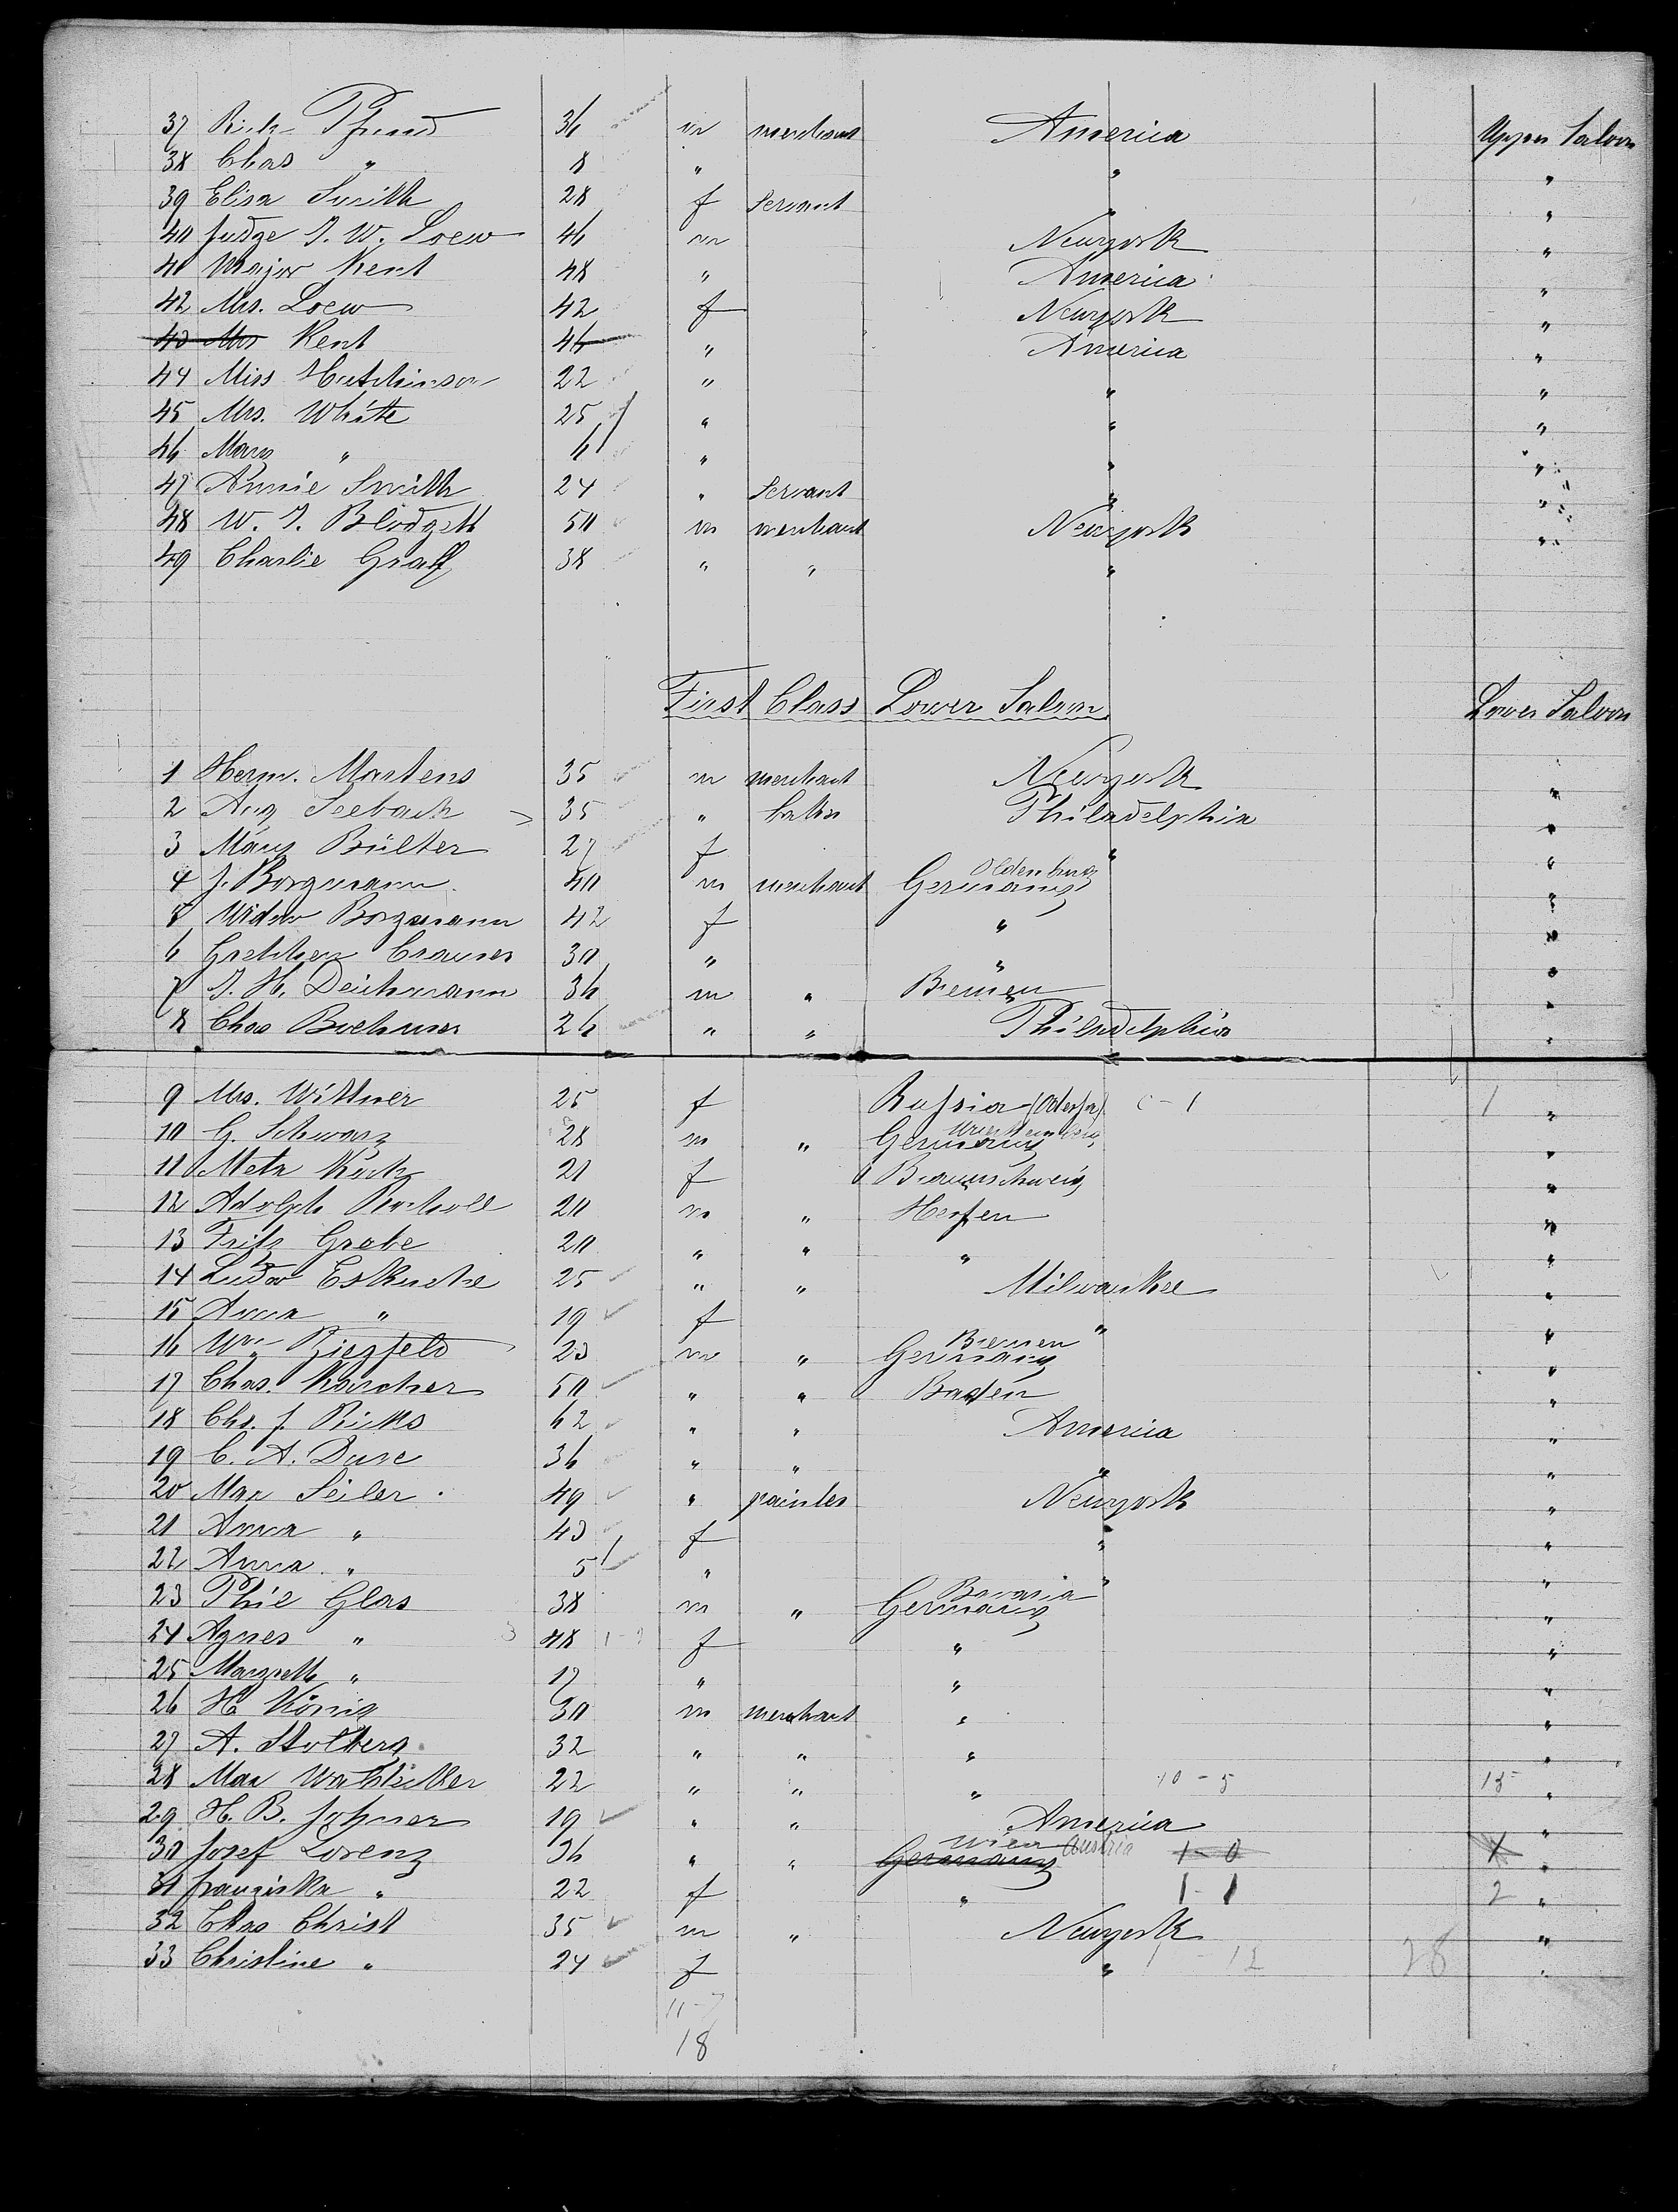 37 Rich Pfund 36 m merchant America Upper Saloon
38 Chas " 8 " " "
39 Elisa Smith 28 f Servant " "
40 Judge F. W. Loew 46 m Newyork "
41 Major Kent 48 " America "
42 Mrs. Loew 42 f Newyork "
43 Mrs Kent 46 " America "
44 Miss Hutchinson 22 " " "
45 Mrs. White 25 " " "
46 Mary " 6 " " "
47 Annie Smith 24 " Servant " "
48 W. T. Blodgett 50 m merchant Newyork "
49 Charlie Graff 38 " " "
First Class Lower Saloon Lower Saloon
1 Herm. Martens 35 m merchant Newyork "
2 Aug Seebach 35 " Philadelphia "
3 Mary Bülter 27 f " "
4 J. Borgmann 40 m merchant Germany Oldenburg "
5 Widow Borgmann 42 f " "
6 Gretchen 30 " " "
7 J. H. Deichmann 36 m " Bremen "
8 Chas Boehmer 26 " " Philadelphia "
9 Mrs. Wittner 25 f Russia (Odessa) 0-1 1 "
10 G. Schwarz 28 m " Germany "
11 Meta Koch 21 f Braunschweig "
12 Adolph 20 m " Hessen "
13 Fritz Grabe 20 " " " "
14 Ludw Eskuche 25 " " Milwaukee "
15 Anna " 19 f " "
16 Wm Ziegfeld 23 m " Germany Bremen "
17 Chas. Karcher 50 " " Baden "
18 Chs. J. Ricks 62 " " America "
19 C. A. Dure 36 " " " "
20 Max Seiler 49 " painter Newyork "
21 Anna " 43 f " "
22 Anna " 5 " " "
23 Phil Glas 38 m " Germany Bavaria "
24 Agnes " 48 f " "
25 Margreth " 17 " " "
26 H. König 30 m merchant " "
27 A. Stolberg 32 " " " "
28 Max 22 " " " 10-5 15 "
29 H. B. Johner 19 " " America "
30 Josef Lorenz 36 " " Germany Wien Austria 1-0 1 "
31 Franziska " 22 f " 1-1 2 "
32 Chas Christ 35 m " Newyork "
33 Christine " 24 f " 12 28 "
11-7
18